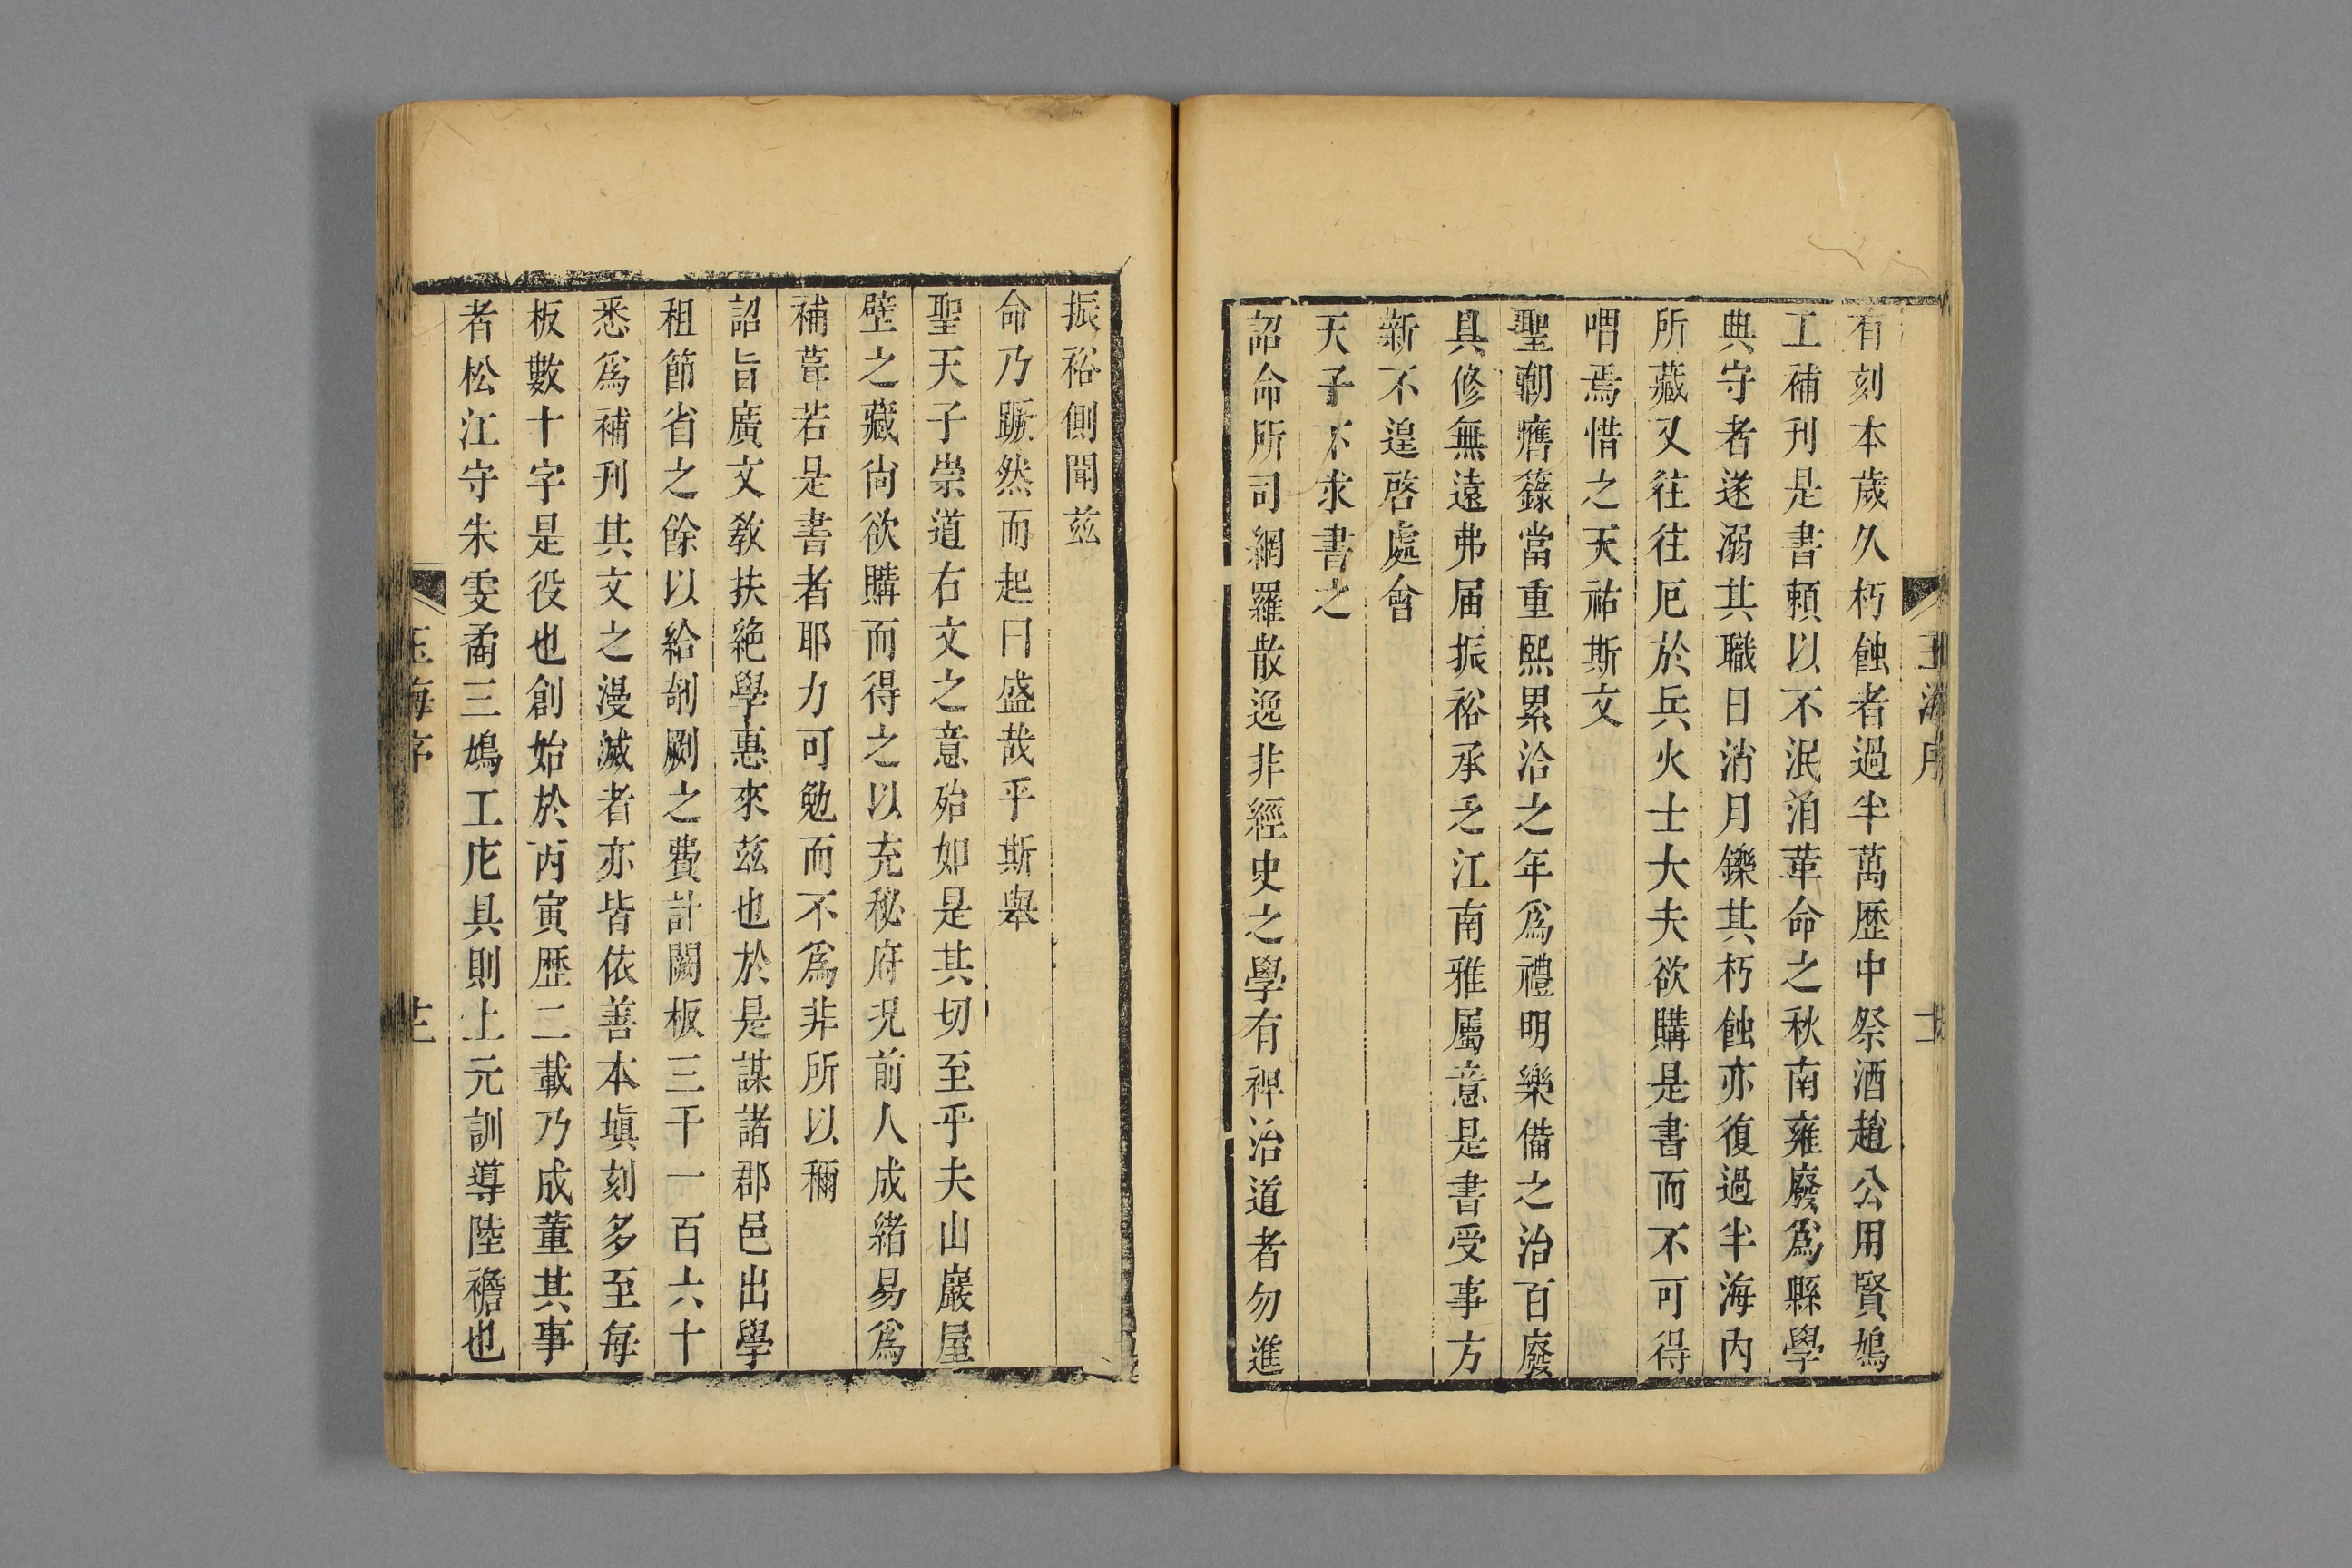 玉海序
十
有刻本歲久朽蝕者過半萬歷中祭酒趙公用賢鳩
工補刊是書頼以不泯洎革命之秋南雍廢爲縣學
典守者遂溺其職日消月鑠其朽蝕亦復過半海內
所藏又往往厄於兵火士大夫欲購是書而不可得
喟焉惜之天祐斯文
聖朝膺籙當重熙累洽之年爲禮明樂備之治百廢
具修無遠弗届振裕承乏江南雅屬意是書受事方
新不遑啓處會
天子下求書之
詔命所司網羅散逸非經史之學有裨治道者勿進
振裕側聞茲
命乃蹶然而起曰盛哉乎斯舉
聖天子崇道右文之意殆如是其切至乎夫山巖屋
壁之藏尙欲購而得之以充秘府况前人成緒易爲
補葺若是書者耶力可勉而不爲非所以稱
詔旨廣文敎扶絶學惠來茲也於是謀諸郡邑出學
租節省之餘以給剞劂之費計闕板三千一百六十
悉爲補刊其文之漫滅者亦皆依善本塡刻多至每
板數十字是役也創始於丙寅歷二載乃成董其事
者松江守朱雯矞三鳩工庀具則上元訓導陸襜也
玉海序